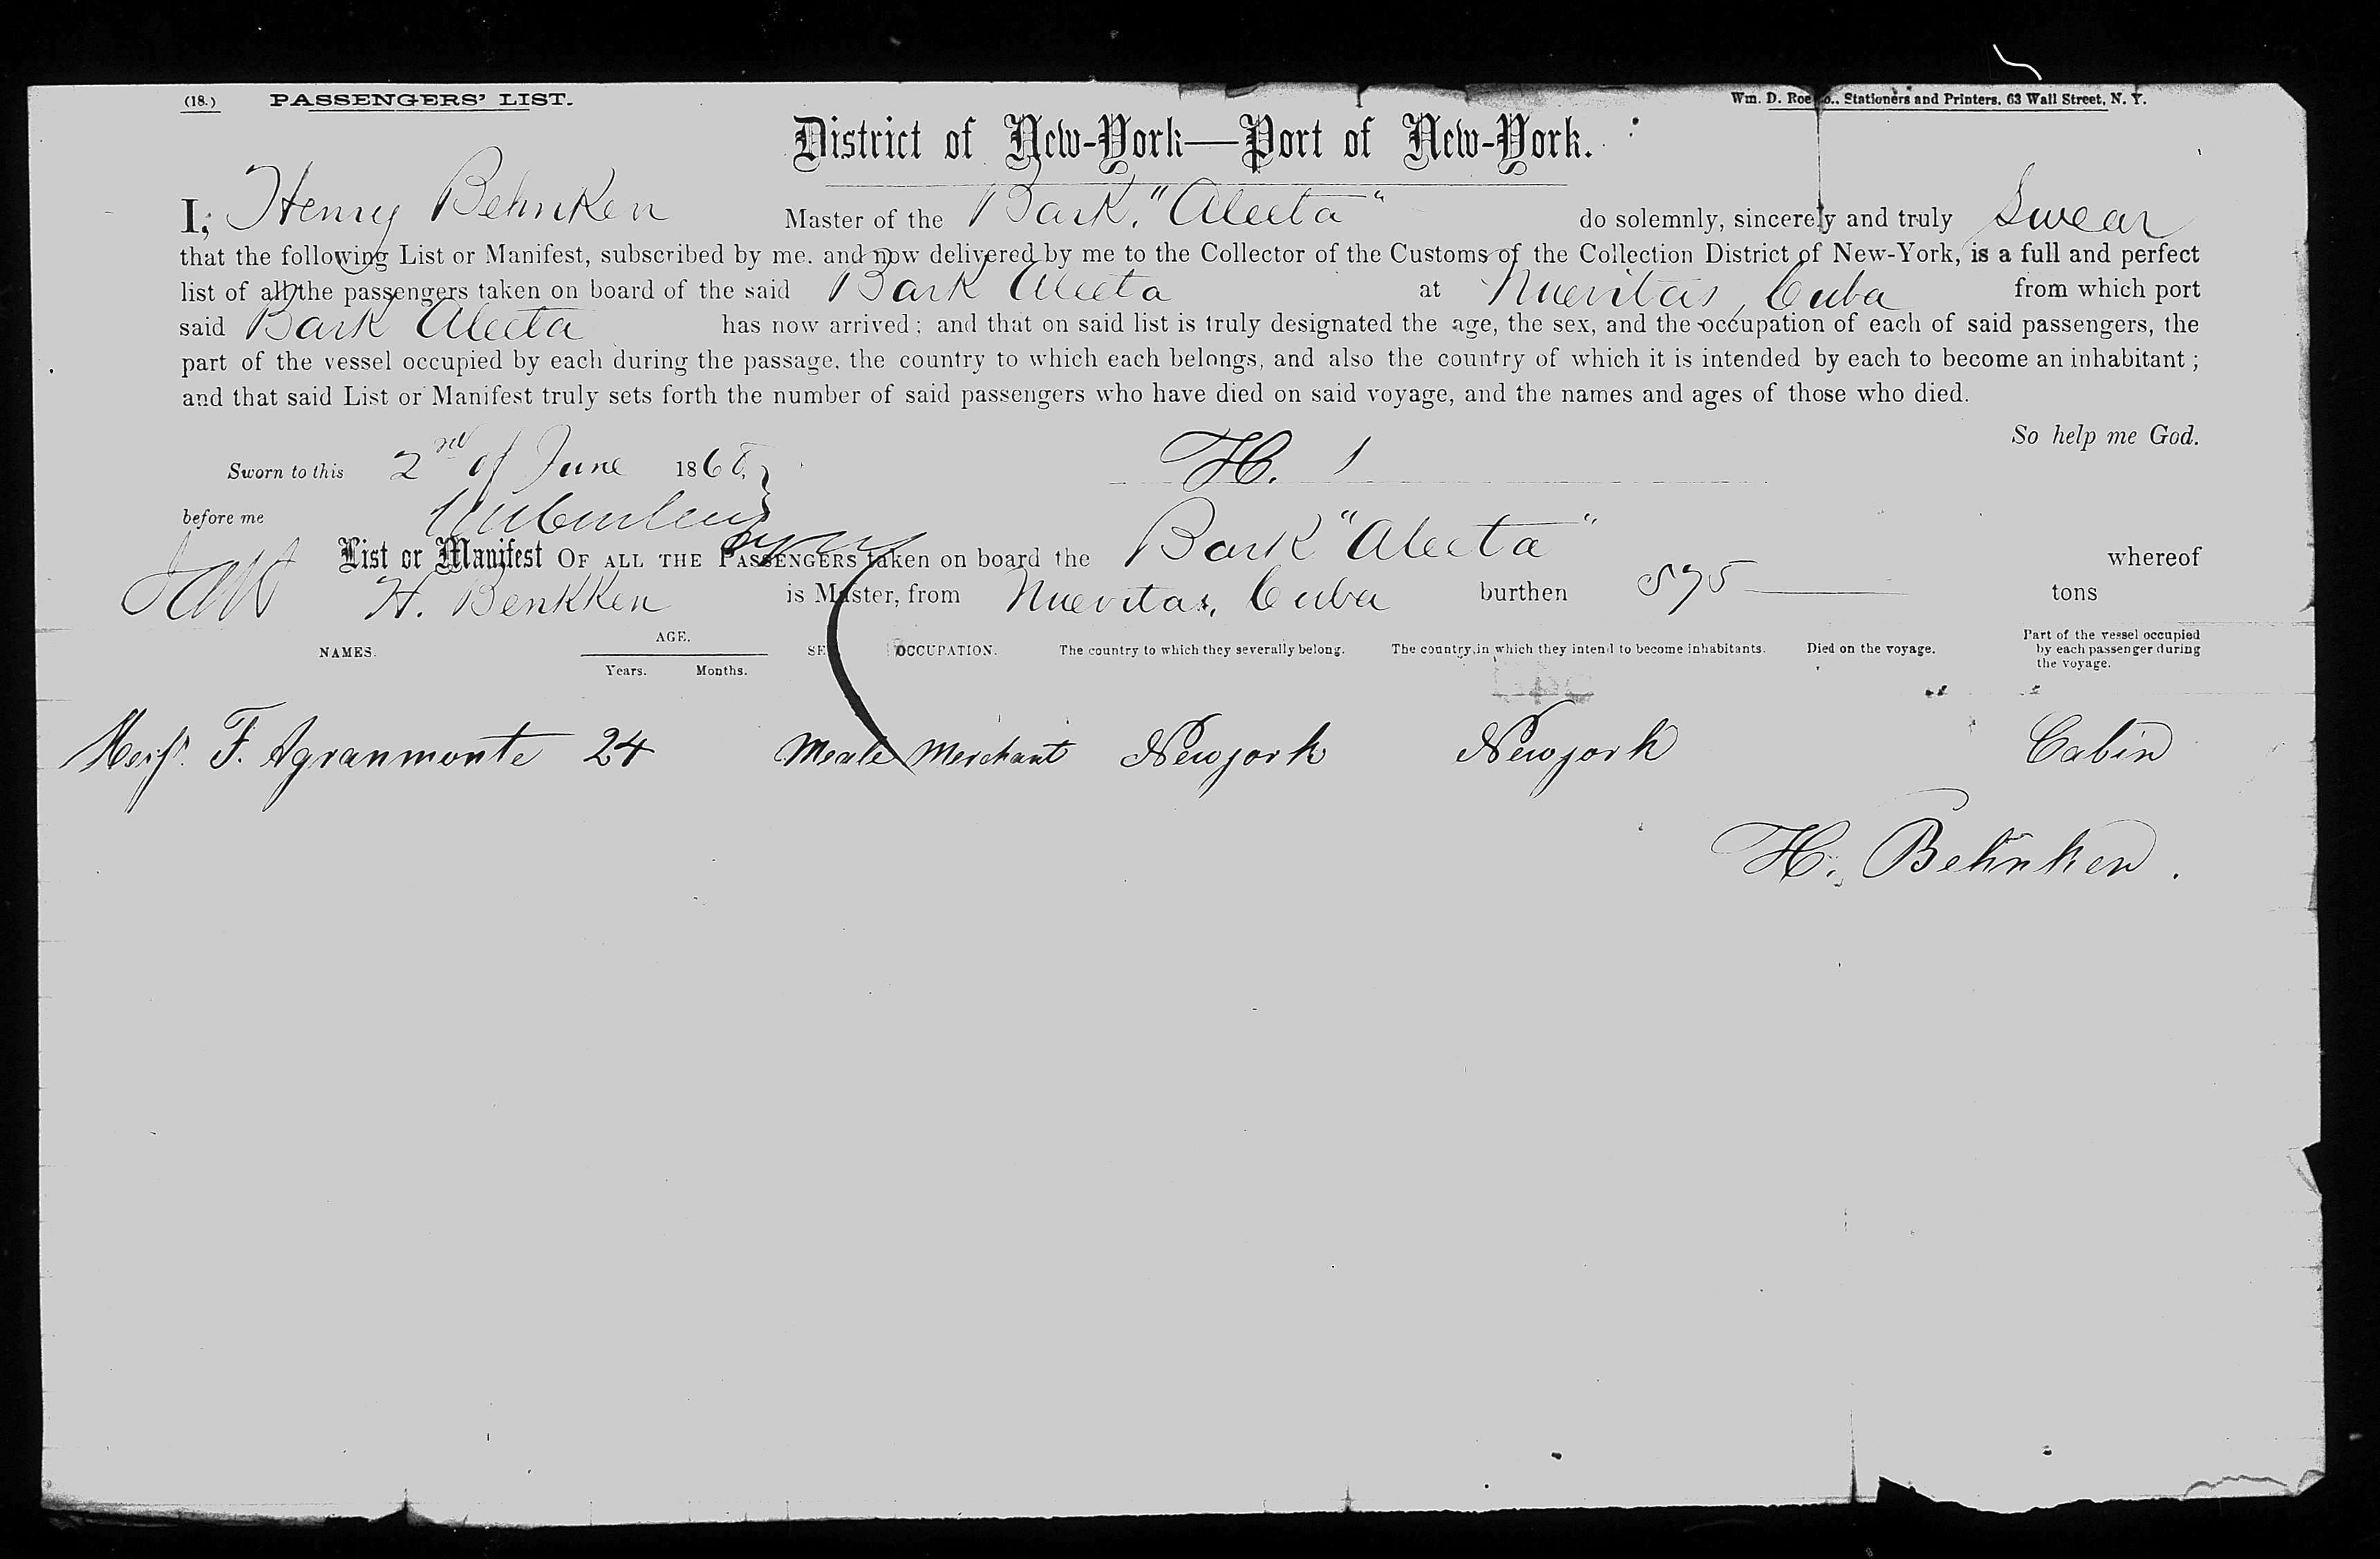 (18.) PASSENGERS' LIST. Wm. D. Roe Stationers and Printers, 63 Wall Street, N. Y.
District of New-York—Port of New-York.
I, Henry Behnken Master of the Bark, "Alecta" do solemnly, sincerely and truly Swear
that the following List or Manifest, subscribed by me, and now delivered by me to the Collector of the Customs of the Collection District of New-York, is a full and perfect
list of all the passengers taken on board of the said Bark Alecta at Nuevitas, Cuba from which port
said Bark Alecta has now arrived; and that on said list is truly designated the age, the sex, and the occupation of each of said passengers, the
part of the vessel occupied by each during the passage, the country to which each belongs, and also the country of which it is intended by each to become an inhabitant;
and that said List or Manifest truly sets forth the number of said passengers who have died on said voyage, and the names and ages of those who died.
So help me God.
Sworn to this 2nd of June 186 H.
before me
List or Manifest OF ALL THE PASSENGERS taken on board the Bark "Alecta" whereof
H. Benkken is Master, from Nuevitas, Cuba burthen 575 tons
NAMES. AGE. Years. Months. SEX OCCUPATION. The country to which they severally belong. The country in which they intend to become inhabitants. Died on the voyage. Part of the vessel occupied by each passenger during the voyage.
F. Agranmonte 24 Meale Merchant Newyork Newyork Cabin
H. Behnken.